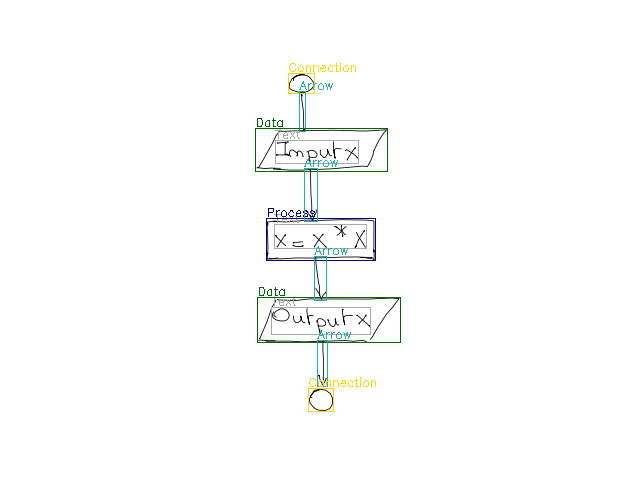 Connection
Arrow
Data
Text
Input x
Arrow
Process
x = x * X
Arrow
Data
Text
Output x
Arrow
Connection